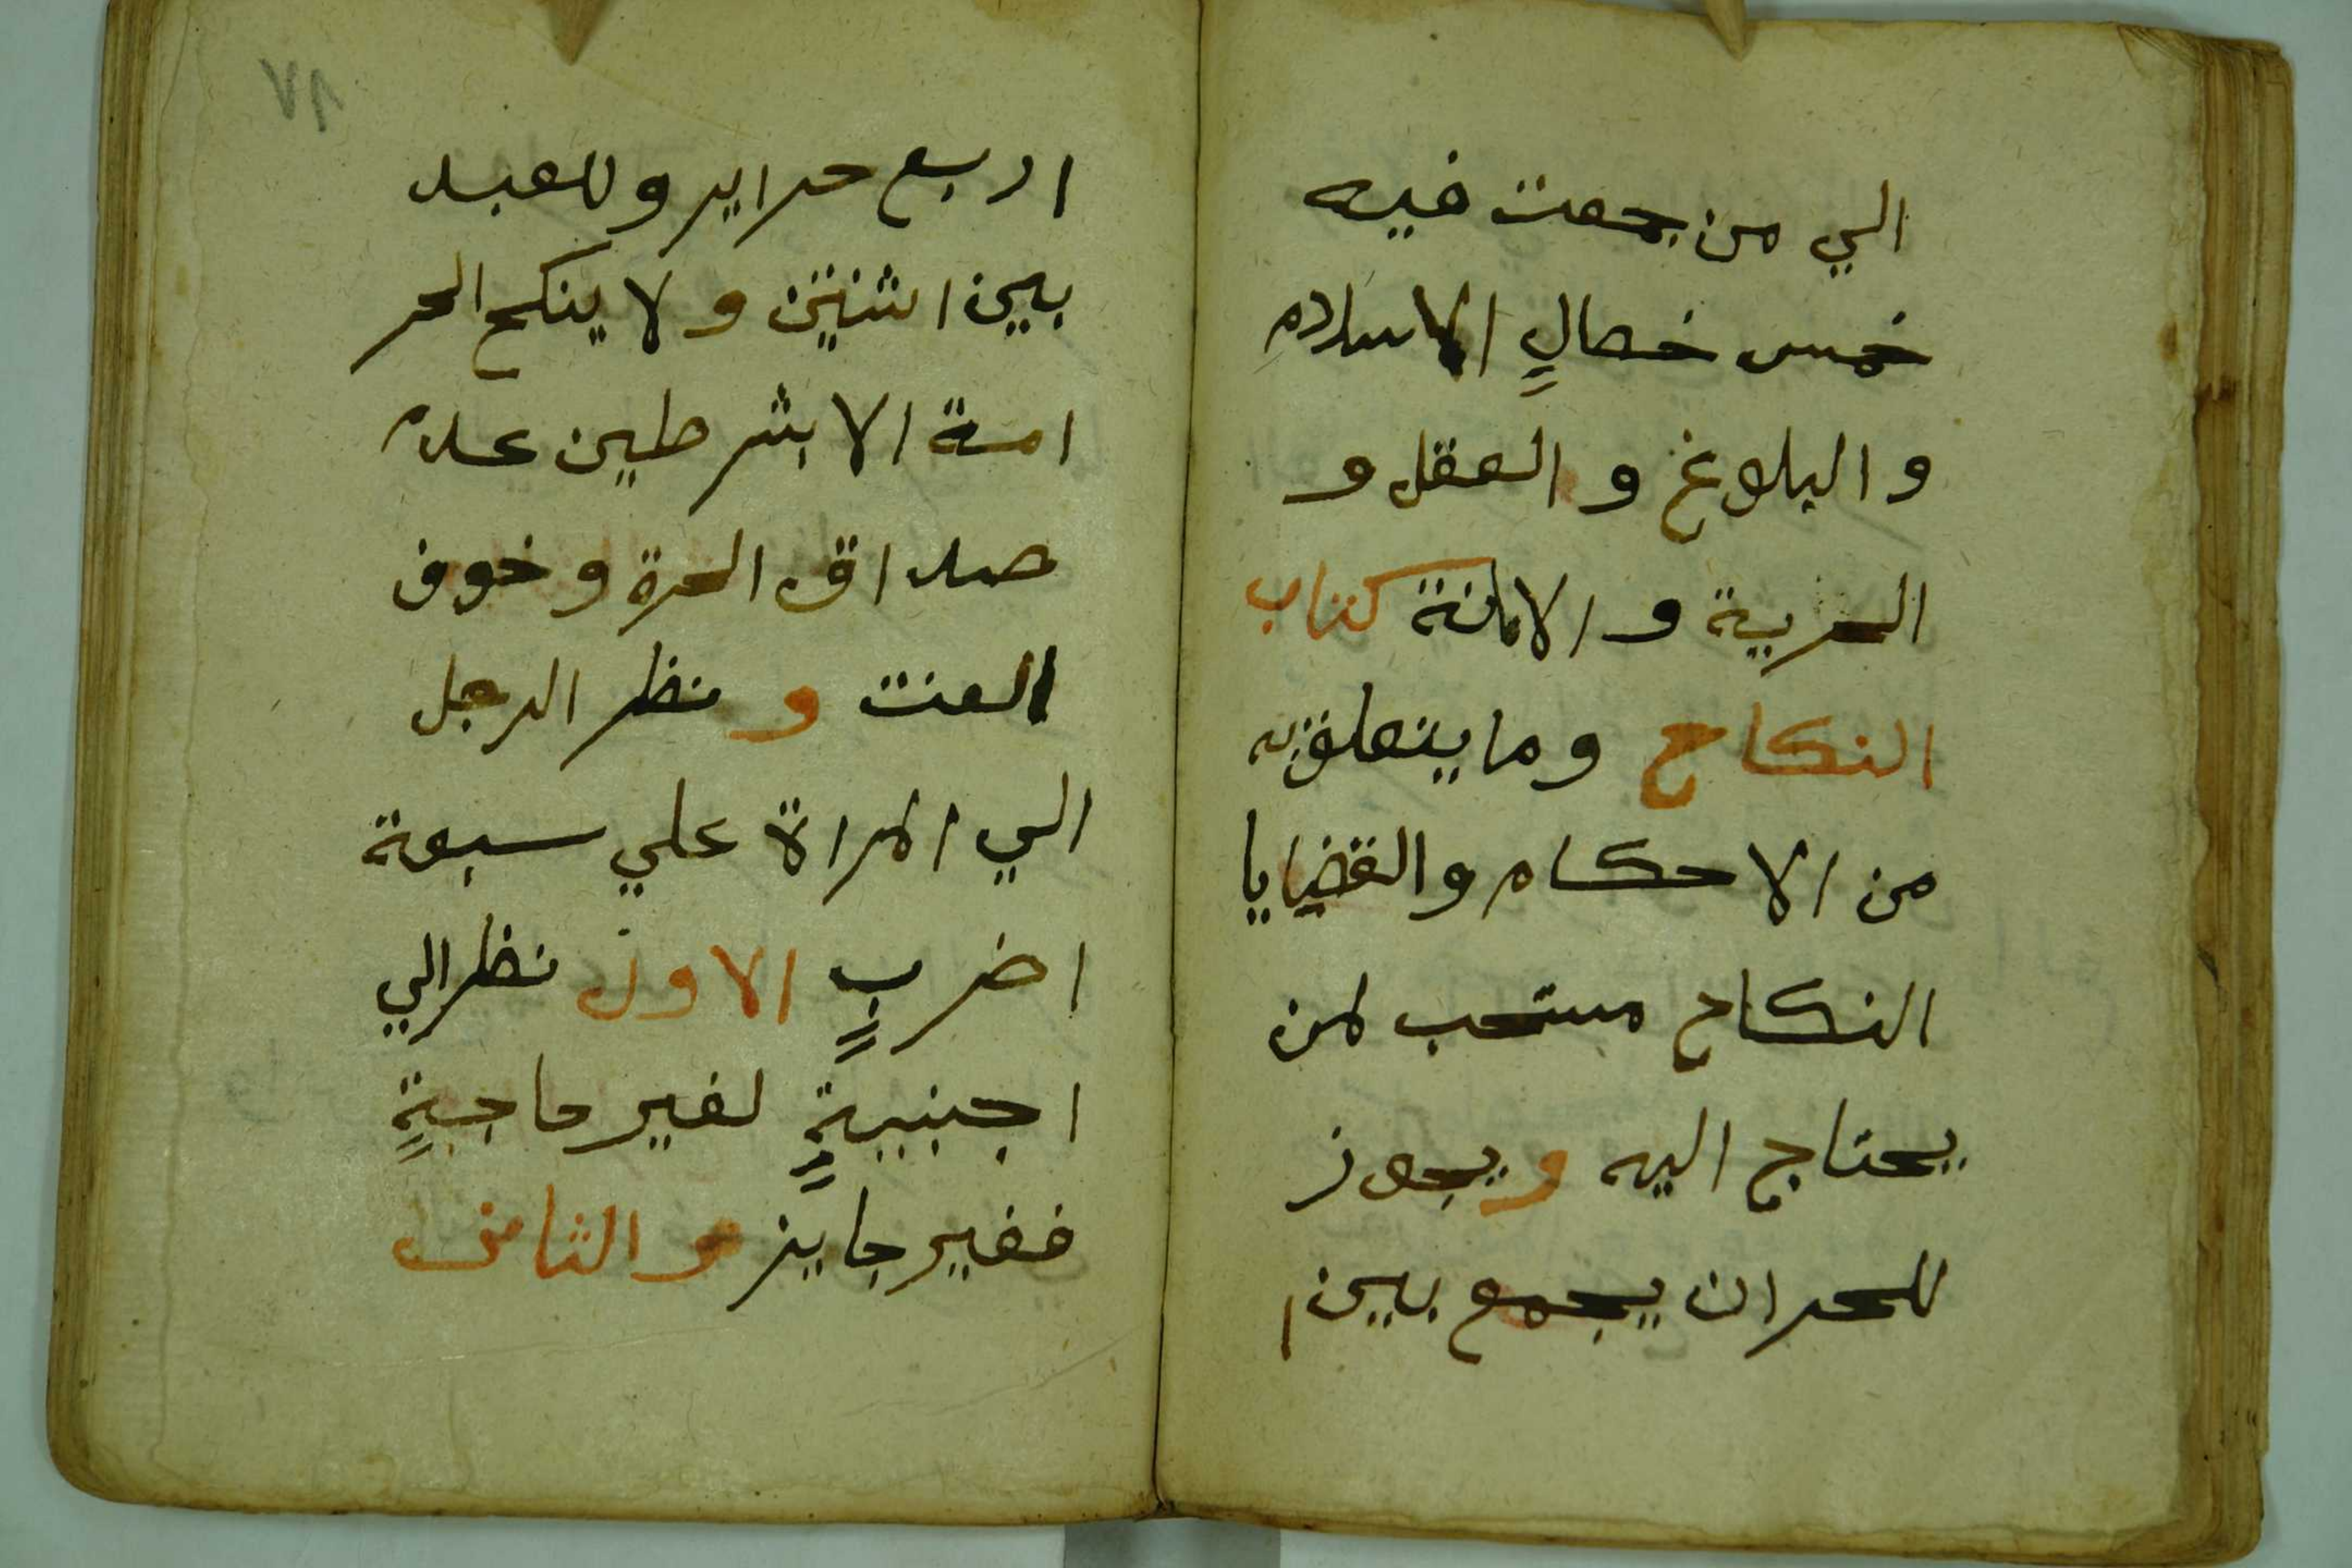 الي من جمعت فيه
خمس خصالٍ الاسلام
و البلاغ و العقل و
الحرية و الامانة كتاب
النكاح وما يتعلق به
من الاحكام والقضايا
النكاح مستحب لمن
يحتاج اليه ويجوز
للحر ان يجمع بين ا
٦٧
اربع حراير وللعبد
بين اثنتين ولا ينكح الحر
امة الا بشرطين عدم
صداق الحرة وخوف
العنت و نظر الرجل
الي المراة علي سبعة
اضربٍ الاول نظر الي
اجنبيةٍ لغير حاجةٍ
فغير جايز والثاني